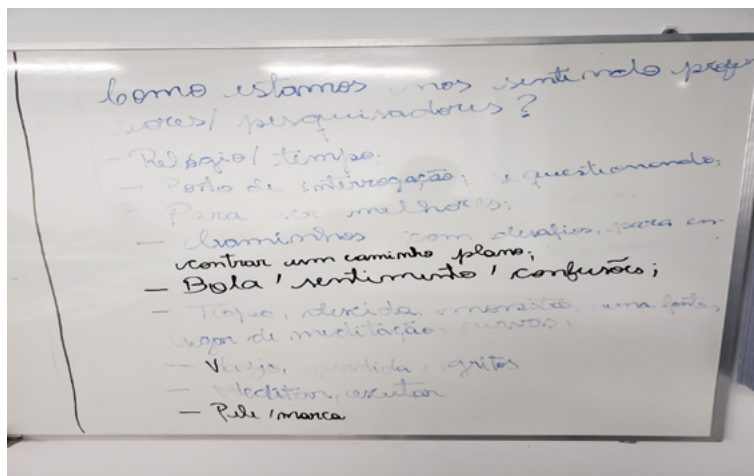 Como estamos nos sentindo profes
sores/ pesquisadores?
- Relógio/ tempo.
- Ponto de interrogação; e questionando;
- Para ser melhores;
- Caminhos com desafios, para en-
contrar um caminho plano;
- Bola / sentimento / confusões;
- descida, monstro, uma fonte,
lugar de meditação, curvas;
- Vazio, perdida, gritos
- Meditar, escutar
- Pele / marca